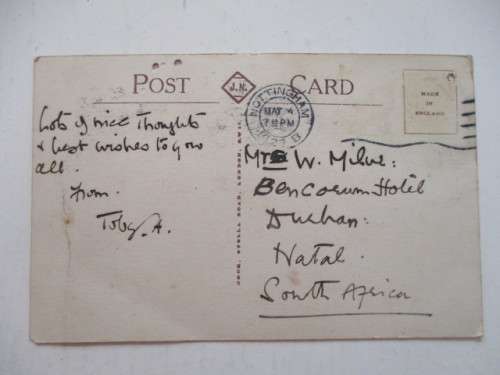 POST J.N. CARD
NOTTINGHAM
MAY 4
MADE
IN
ENGLAND
Lots of nice Thoughts
& best wishes to you
all.
from.
Toby. A.
Mrs W. Milne:
Hotel
Durban:
Natal.
South Africa